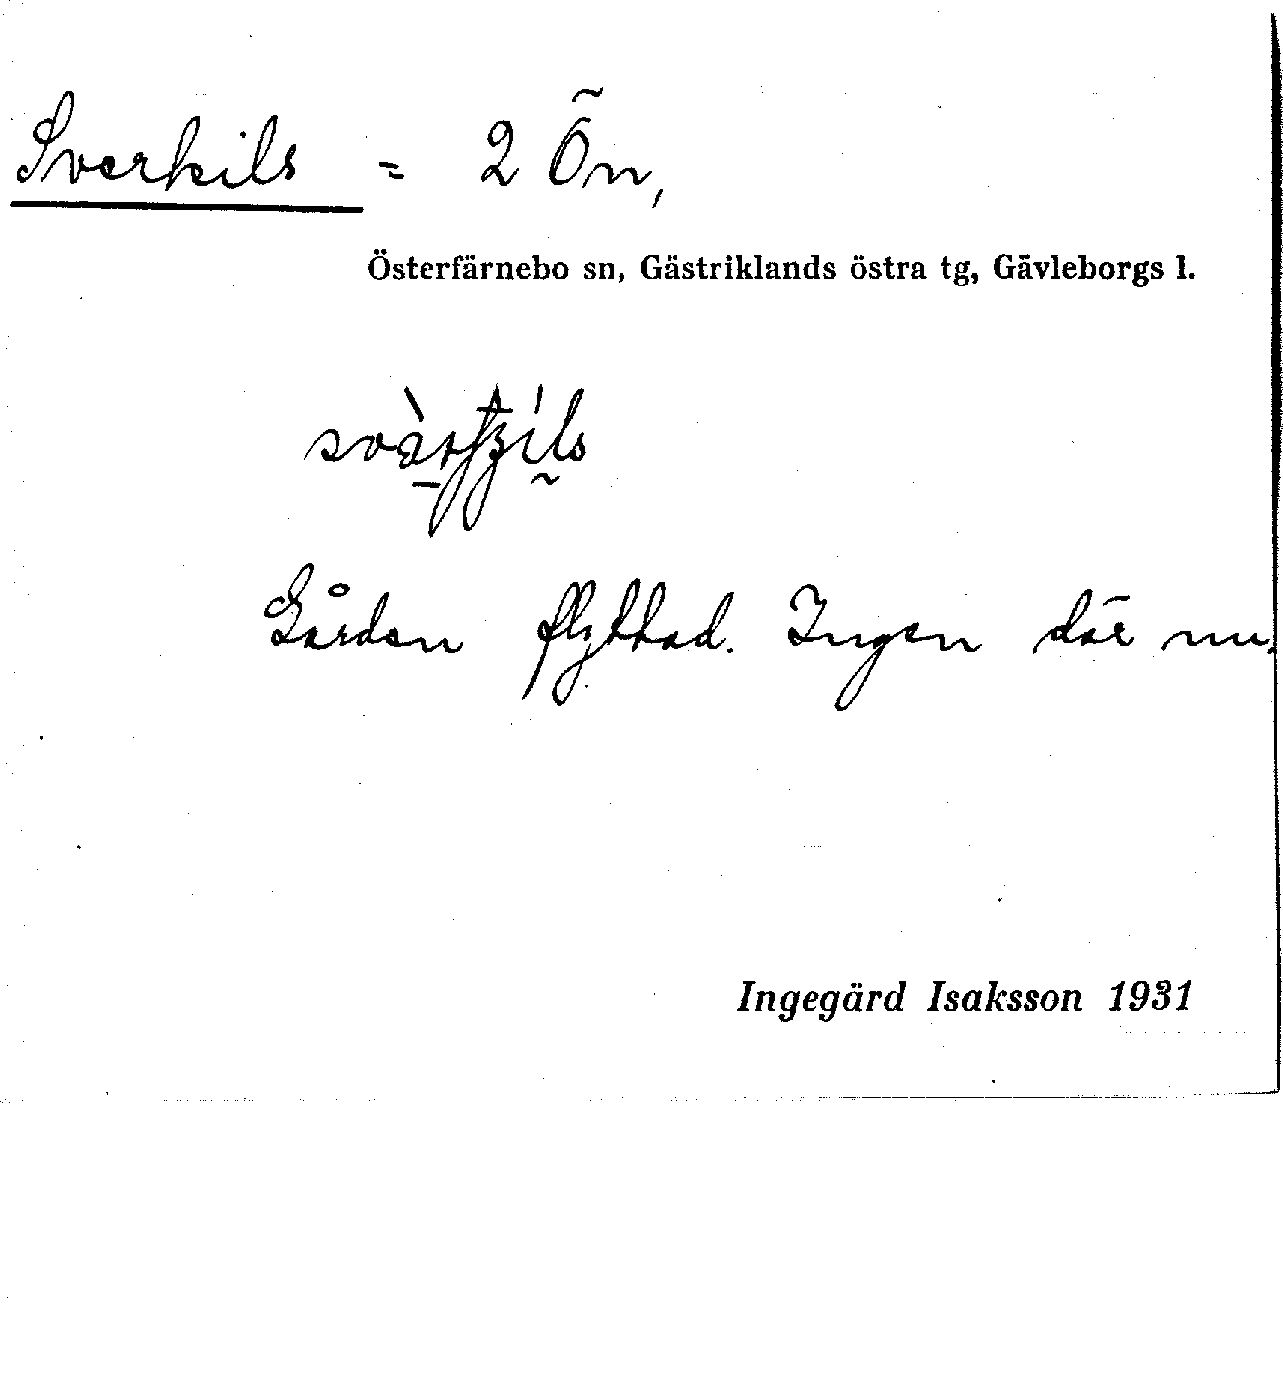 Sverkils = 2 Ön,
Österfärnebo sn, Gästriklands östra tg, Gävleborgs l.
Gården flyttad. Ingen där nu.
Ingegärd Isaksson 1931